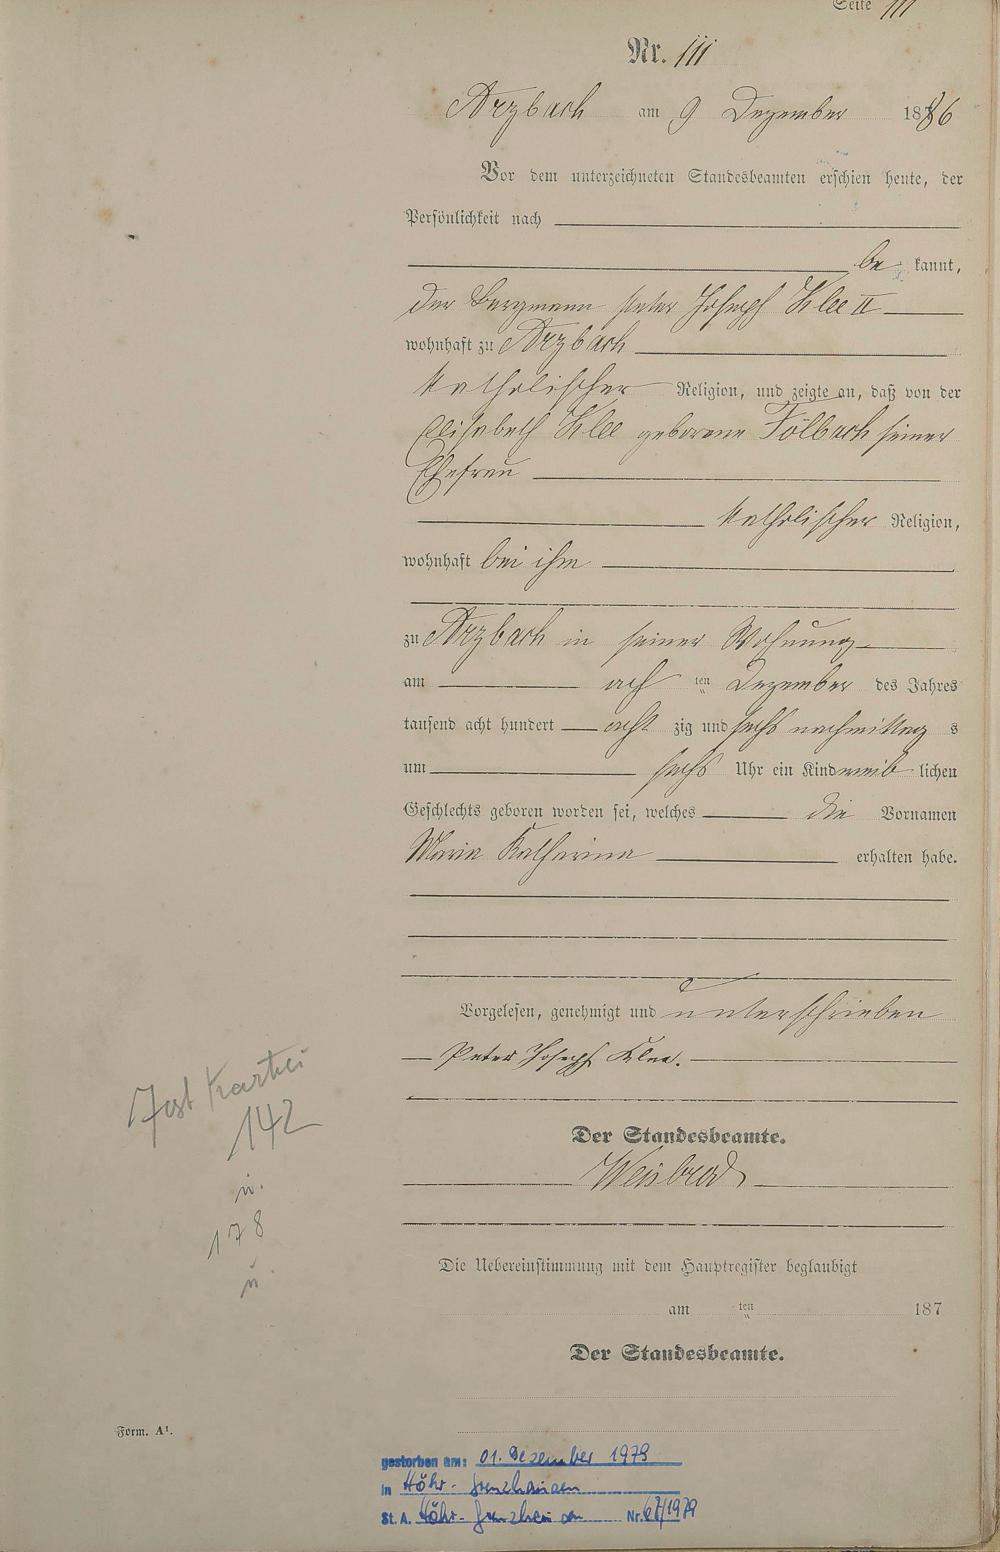 Seite 111
Nr. 111
Arzbach am 9 Dezember 1886
Vor dem unterzeichneten Standesbeamten erschien heute, der
Persönlichkeit nach
be kannt,
der Bergmann Peter Joseph Klee II
wohnhaft zu Arzbach
katholischer Religion, und zeigte an, daß von der
Elisabeth Klee geborene Fölbach seiner
Ehefrau
katholischer Religion,
wohnhaft bei ihm
zu Arzbach in seiner Wohnung
am ach ten Dezember des Jahres
tausend acht hundert acht zig und sechs nachmittag s
um sechs Uhr ein Kind weib lichen
Geschlechts geboren worden sei, welches die Vornamen
Maria Katharina erhalten habe.
Vorgelesen, genehmigt und unterschrieben
Peter Joseph Klee.
Der Standesbeamte.
Weisbrod
Die Uebereinstimmung mit dem Hauptregister beglaubigt
am ten 187
Der Standesbeamte.
Kartei
142
u.
178
u.
Form. A¹.
gestorben am: 01. Dezember 1979
in Höhr-Grenzhausen
St. A. Höhr-Grenzhausen Nr. 67/1979